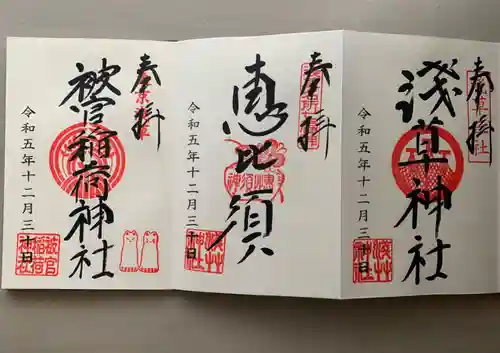 奉拝
浅草神社
令和五年十二月三十日
奉拝
恵比須
令和五年十二月三十日
奉拝
被官稲荷神社
令和五年十二月三十日